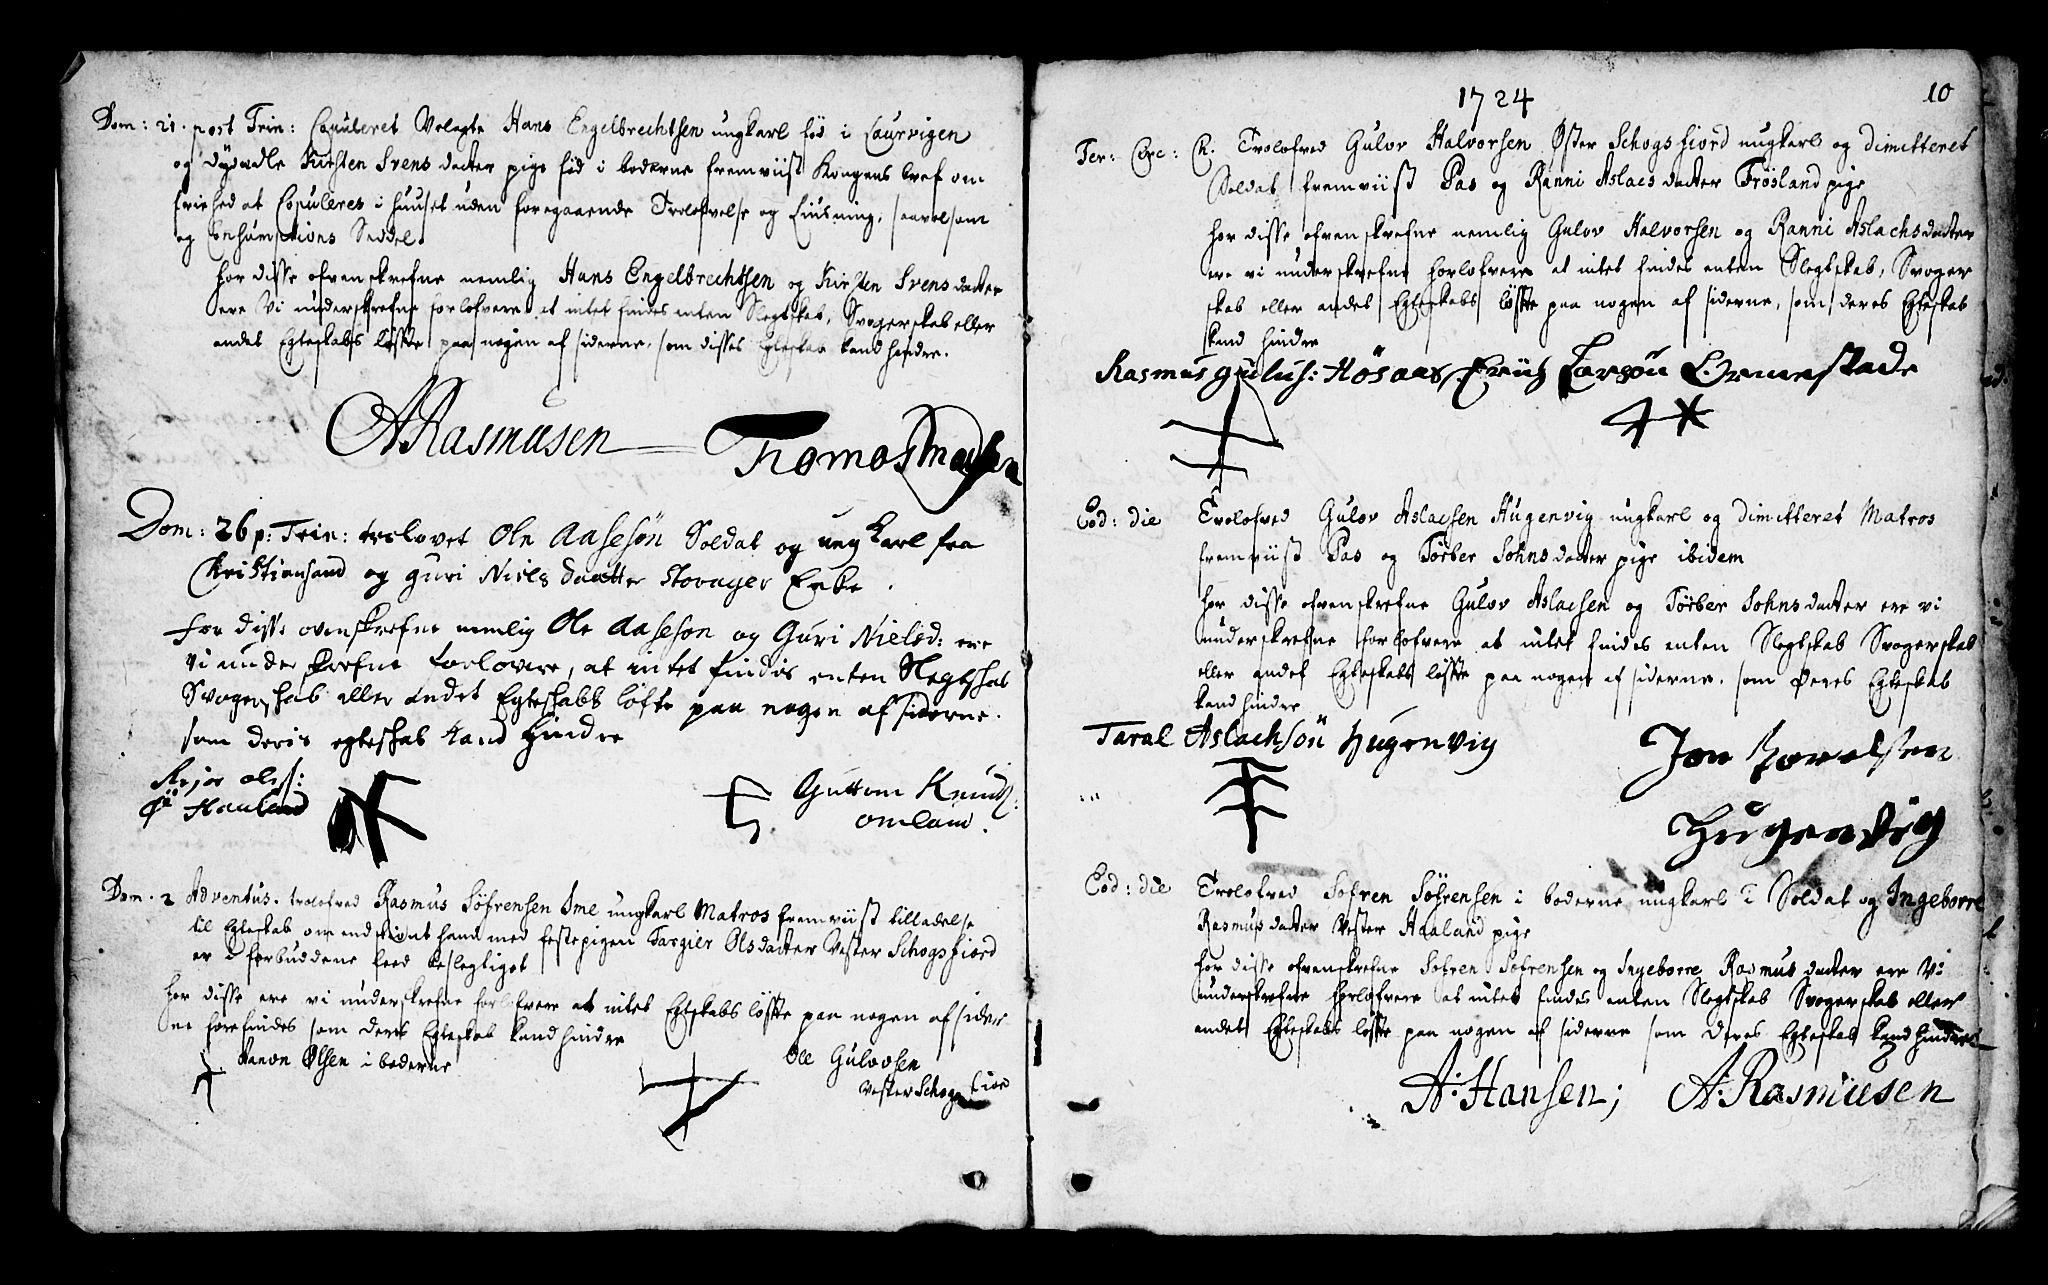 Dom: 21. post Trin: Copuleret Velagte Hans Engelbrechtsen ungkarl fød i Laurvigen
og dydædle Kirsten Svens datter pige fød i boderne fremviist Kongens bref om
friehed at Copuleres i huuset uden foregaaende Trolofvelse og liusning, saavelsom
og Consumptions Seddel.
for disse ofvenskrefne nemlig Hans Engelbrechtsen og Kirsten Svens datter
ere Vi underskrefne forlofvere at intet findes enten Slegtskab, Svogerskab eller
andet Egteskabs løfte paa nogen af siderne, som disses Egteskab kand hindre.
A Rasmusen Tomos Madsen
Dom: 26 p: Trin: trolovet Ole Aasesøn Soldat og ung karl fra
Christiansand og guri Niels daatter Stovager Enke.
for disse ovenskrefne nemlig Ole Aaseson og Guri Nielsd: ere
vi underskrefne forlovere, at intet findis enten Slegtskab
Svogerskab eller andet Egteskabs løfte paa nogen af siderne.
som deris egteskab kand hindre
Rejer olss: Guttom Knudss:
Ø Hauland omland.
Dom. 2 Adventus. trolofved Rasmus Søfrensen Ime ungkarl Matros fremviist tilladelse
til Egteskab om endskiønt hand med festepigen Targier Olsdatter Vester Schogsfiord
er i forbuddene leed beslegtiget
for disse ere vi underskrefne forlofvere at intet Egteskabs løfte paa nogen af sider
ne forefindes som deres Egteskab kand hindre
Olsen i boderne Ole Gulovsen
Vester Schogsfiord
1724 10
Fer: Circ: C. Trolofved Gulov Halvorsen Øster Schogsfiord ungkarl og dimitteret
Soldat fremviist Pas og Ranni Aslacs datter Frøsland pige
for disse ofvenskrefne nemlig Gulov Halvorsen og Ranni Aslachsdatter
ere vi underskrefne forlofvere at intet findes enten Slegtskab, Svoger
skab eller andet Egteskabs løfte paa nogen af siderne, som deres Egteskab
kand hindre
Rasmus gulus: Høsaas Eriich Larsøn Ormestade
Eod: die Trolofved Gulov Aslacsen Hugenvig ungkarl og dimitteret Matros
fremviist Pas og Tørber Johns datter pige ibidem
for disse ofvenskrefne Gulov Aslacsen og Tørber Johns datter ere vi
underskrefne forlofvere at intet findes enten Slegtskab Svogerskab
eller andet Egteskabs løfte paa nogen af siderne. som deres Egteskab
kand hindre
Taral Aslachsøn Hugenvig Jon Torelsen
Hugenvig
Eod: die Trolofved Søfren Søfrensen i boderne ungkarl Soldat og Ingeborre
Rasmus datter Vester Haaland pige
for disse ofvenskrefne Søfren Søfrensen og Ingeborre Rasmus datter ere Vi
underskrefne forlofvere at intet findes enten Slegtskab Svogerskab eller
andet Egteskabs løfte paa nogen af siderne som deres Egteskab kand hindre
A: Hansen; A: Rasmusen